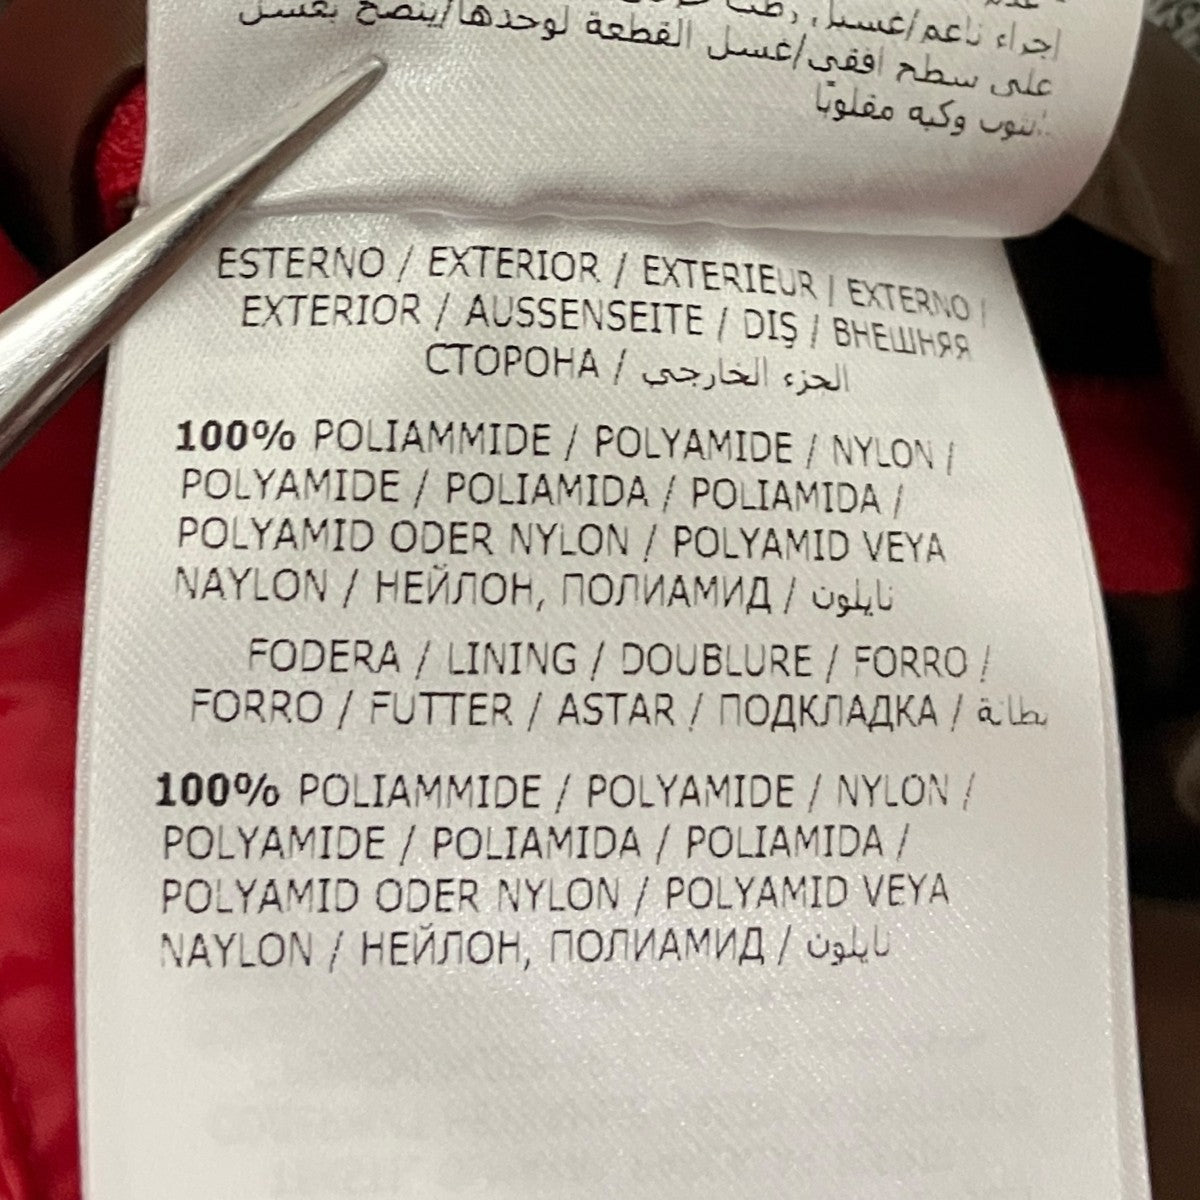 إجراء ناعم/غسيل،
على سطح افقي/غسل القطعة لوحدها/ينصح بغسل
وكيه مقلوبًا
ESTERNO / EXTERIOR / EXTERIEUR / EXTERNO /
EXTERIOR / AUSSENSEITE / DIŞ / ВНЕШНЯЯ
СТОРОНА / الجزء الخارجي
100% POLIAMMIDE / POLYAMIDE / NYLON /
POLYAMIDE / POLIAMIDA / POLIAMIDA /
POLYAMID ODER NYLON / POLYAMID VEYA
NAYLON / НЕЙЛОН, ПОЛИАМИД / نايلون
FODERA / LINING / DOUBLURE / FORRO /
FORRO / FUTTER / ASTAR / ПОДКЛАДКА / بطانة
100% POLIAMMIDE / POLYAMIDE / NYLON /
POLYAMIDE / POLIAMIDA / POLIAMIDA /
POLYAMID ODER NYLON / POLYAMID VEYA
NAYLON / НЕЙЛОН, ПОЛИАМИД / نايلون